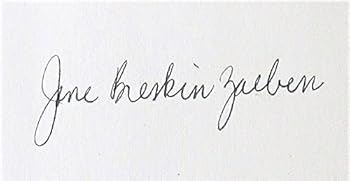 Jane Breskin Zalben